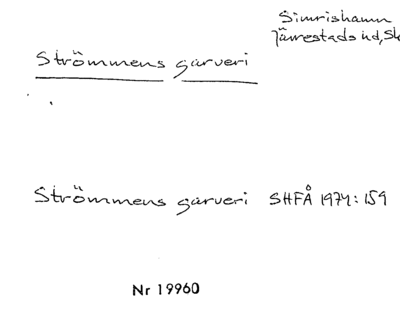 Simrishamn
Järrestads hd, Sk
Strömmens garveri
Strömmens garveri SHFÅ 1974:159
Nr 19960